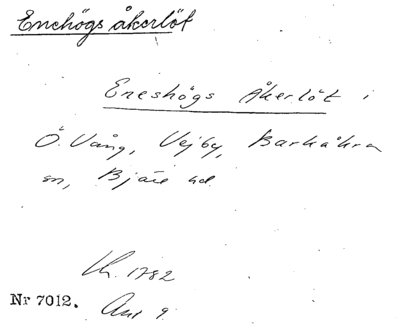 Enehögs åkerlöt
Eneshögs Åkerlöt i
Ö. Vång, Vejby, Barkåkra
sn, Bjäre hd
Lh. 1782
Nr 7012. Akt 9.